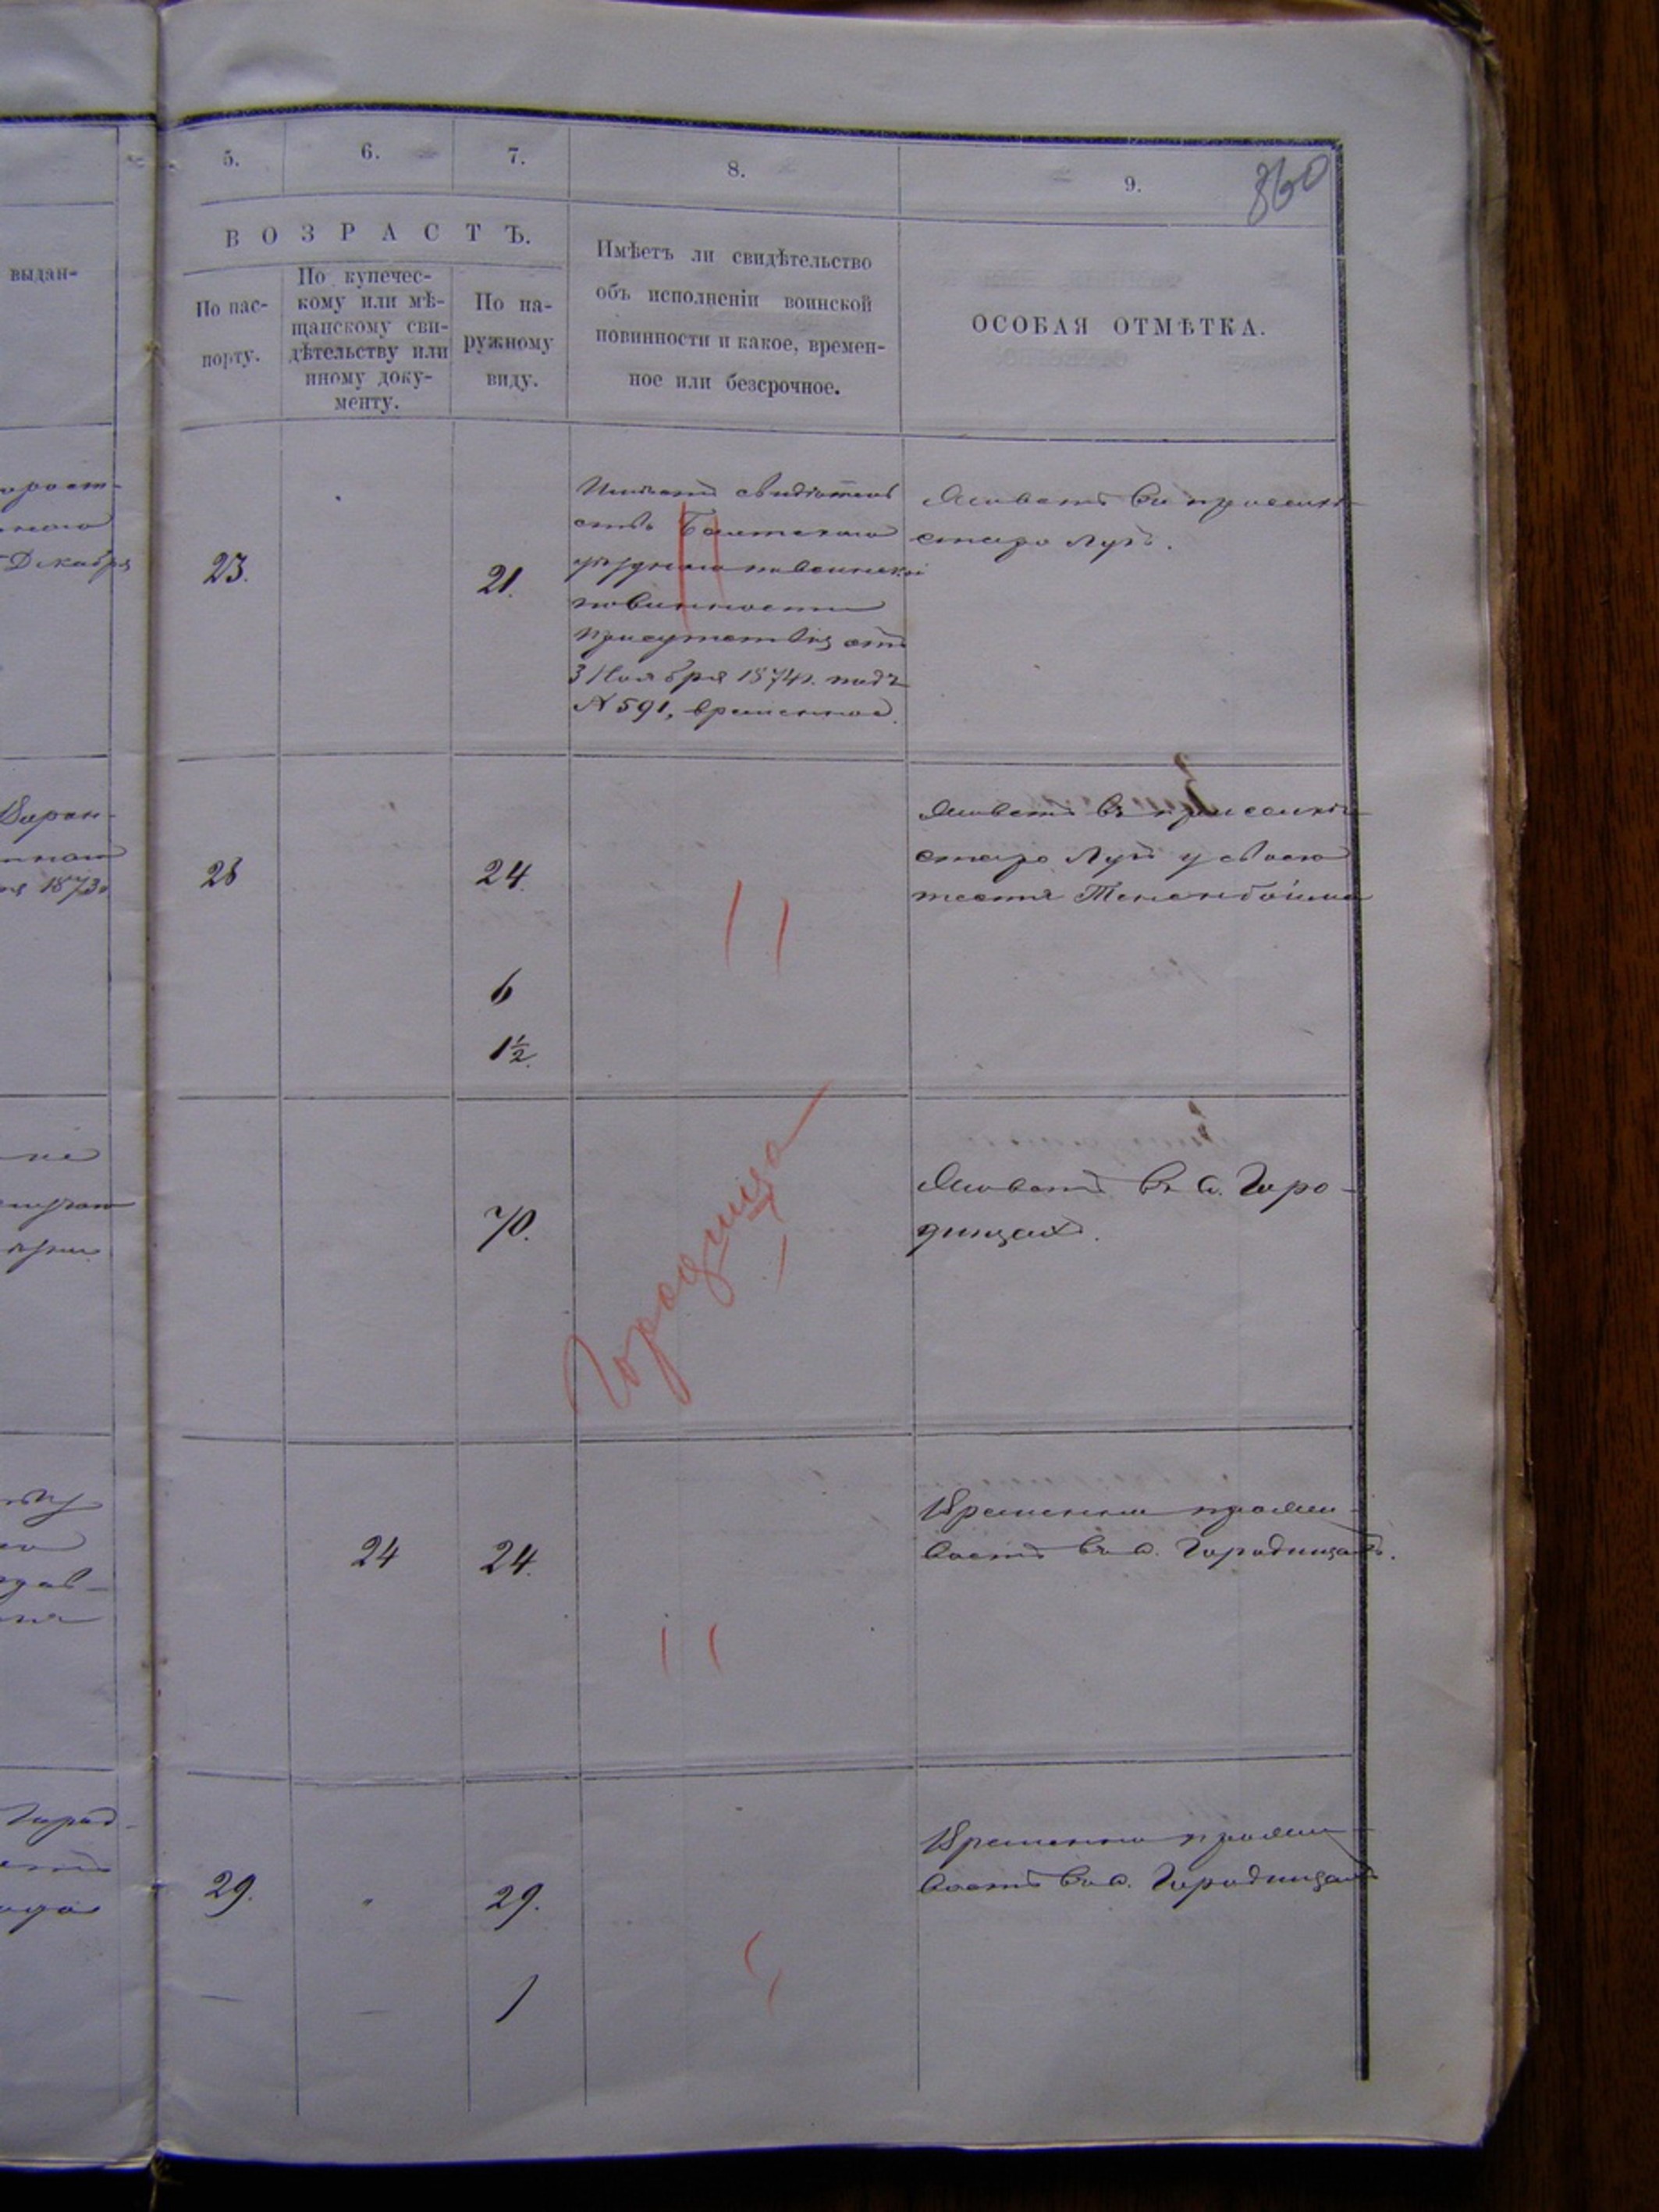 860
5. 6. 7. 8. 9.
ВОЗРАСТЪ.
выдан-
По пас-
порту.
По купечес-
кому или мѣ-
щанскому сви-
дѣтельству или
иному доку-
менту.
По на-
ружному
виду.
Имѣетъ ли свидѣтельство
объ исполненіи воинской
повинности и какое, времен-
ное или безсрочное.
ОСОБАЯ ОТМѢТКА.
Декабря
23.
21.
Имѣетъ свидѣтель
ство Балтскаго
уѣзднаго по воинской
повинности
присутствія отъ
3 Ноября 1874 г. подъ
№ 591, временное.
Живетъ въ
староже Лугъ.
1873
28
24.
6
1½.
Живетъ въ
Лугъ у своего
тестя Тенембойма
70.
Городища
Живетъ въ с. Горо-
дищахъ.
24
24.
Временно прожи-
ваетъ въ с. Городищахъ.
Город-
29.
29.
1
Временно прожи-
ваетъ въ с. Городищахъ